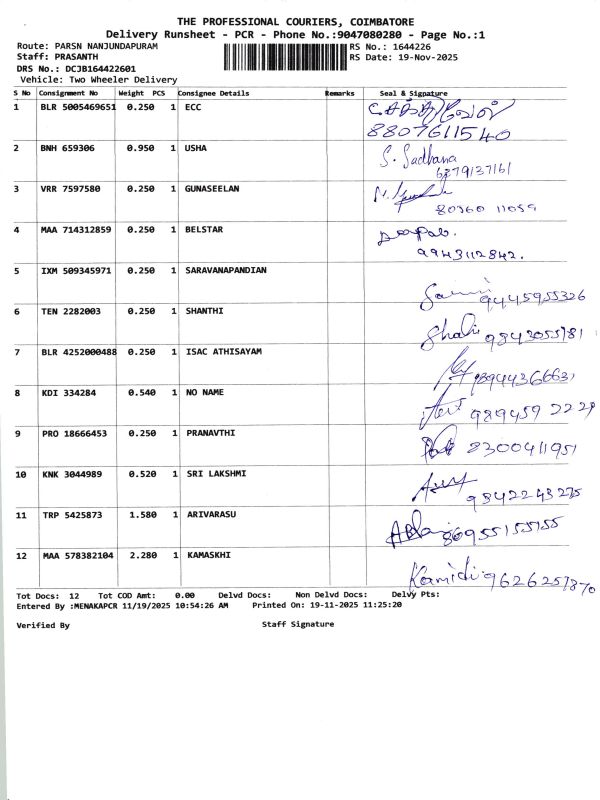 THE PROFESSIONAL COURIERS, COIMBATORE
Delivery Runsheet - PCR - Phone No.:9047080280 - Page No.:1
Route: PARSN NANJUNDAPURAM RS No.: 1644226
Staff: PRASANTH RS Date: 19-Nov-2025
DRS No.: DCJB164422601
Vehicle: Two Wheeler Delivery
S No Consignment No Weight PCS Consignee Details Remarks Seal & Signature
1 BLR 5005469651 0.250 1 ECC
8807611540
2 BNH 659306 0.950 1 USHA S. Sadhana
6379137161
3 VRR 7597580 0.250 1 GUNASEELAN
80360 11059
4 MAA 714312859 0.250 1 BELSTAR
9943112842.
5 IXM 509345971 0.250 1 SARAVANAPANDIAN
9445955326
6 TEN 2282003 0.250 1 SHANTHI
9842055781
7 BLR 4252000488 0.250 1 ISAC ATHISAYAM
8 KDI 334284 0.540 1 NO NAME
989459 2229
9 PRO 18666453 0.250 1 PRANAVTHI
8300411951
10 KNK 3044989 0.520 1 SRI LAKSHMI
9842243275
11 TRP 5425873 1.580 1 ARIVARASU
12 MAA 578382104 2.280 1 KAMASKHI
9626257870
Tot Docs: 12 Tot COD Amt: 0.00 Delvd Docs: Non Delvd Docs: Delvy Pts:
Entered By :MENAKAPCR 11/19/2025 10:54:26 AM Printed On: 19-11-2025 11:25:20
Verified By Staff Signature